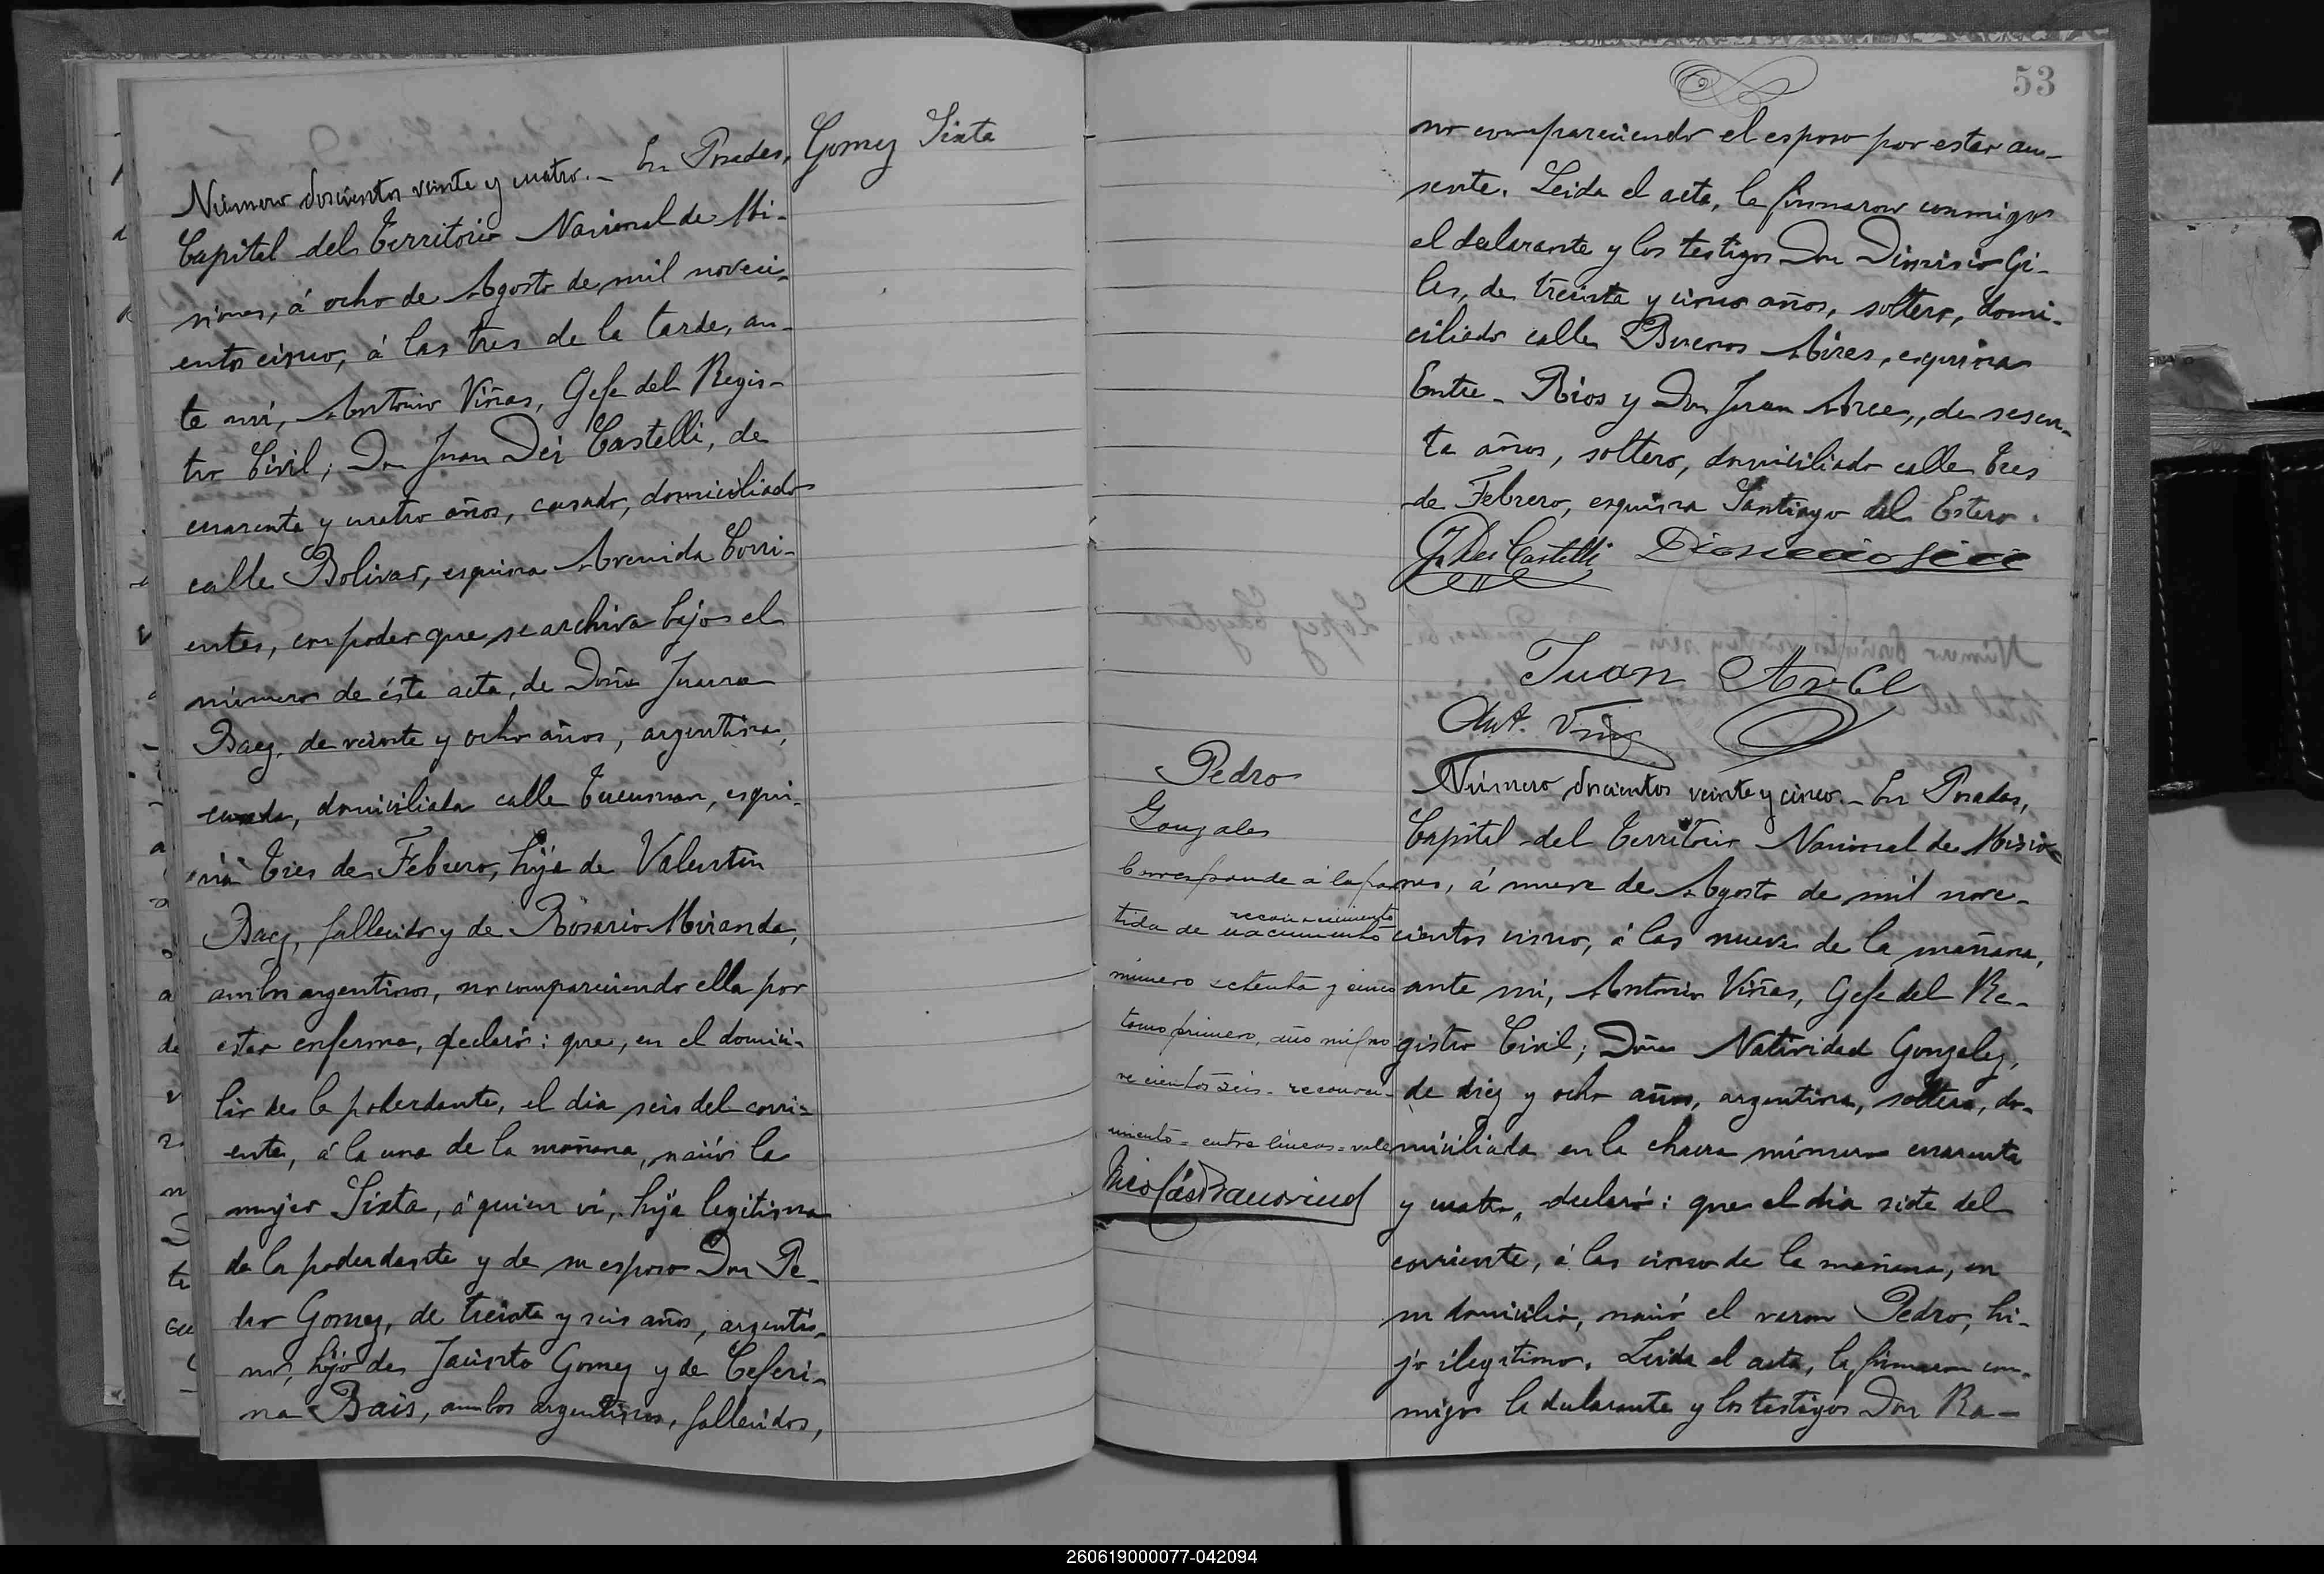 Gomez Sixta
Número doscientos veinte y cuatro.- En Posadas,
Capital del Territorio Nacional de Mi-
siones, á ocho de Agosto de mil noveci-
entos cinco, á las tres de la tarde, an-
te mi, Antonio Viñas, Gefe del Regis-
tro Civil; Don Juan Dei Castelli, de
cuarenta y cuatro años, casado, domiciliado
calle Bolivar, esquina Avenida Corri-
entes, con poder que se archiva bajo el
número de ésta acta, de Doña Juana
Baez, de veinte y ocho años, argentina,
casada, domiciliada calle Tucuman, esqui-
na Tres de Febrero, hija de Valentin
Baez, fallecido y de Rosario Miranda,
ambos argentinos, no compareciendo ella por
estar enferma, declaró: que, en el domici-
lio de la poderdante, el dia seis del corri-
ente, á la una de la mañana, nació la
mujer Sixta, á quien vi, hija legitima
de la poderdante y de su esposo Don Pe-
dro Gomez, de treinta y seis años, argenti-
no, hijo de Jacinto Gomez y de Ceferi-
na Bais, ambos argentinos, fallecidos,
53
no compareciendo el esposo por estar au-
sente. Leida el acta, la firmaron conmigo
el declarante y los testigos Don Dionisio Gi-
les, de treinta y cinco años, soltero, domi-
ciliado calle Buenos Aires, esquina
Entre-Rios y Don Juan Arce, de sesen-
ta años, soltero, domiciliado calle Tres
de Febrero, esquina Santiago del Estero.
J. Dei Castelli
Juan Arce
Ant. Viñas
Pedro
Gonzales
Corresponde á la par-
tida de reconocimiento
número setenta y cinco
tomo primero, año mil no
vecientos seis. reconoci-
miento = entre lineas = vale
Número doscientos veinte y cinco.- En Posadas,
Capital del Territorio Nacional de Misio-
nes, á nueve de Agosto de mil nove-
cientos cinco, á las nueve de la mañana,
ante mi, Antonio Viñas, Gefe del Re-
gistro Civil; Doña Natividad Gonzalez,
de diez y ocho años, argentina, soltera, do-
miciliada en la chacra número cuarenta
y cuatro, declaró: que el dia siete del
corriente, á las cinco de la mañana, en
su domicilio, nació el varon Pedro, hi-
jo ilegitimo. Leida el acta, la firmaron con-
migo la declarante y los testigos Don Ra-
260619000077-042094